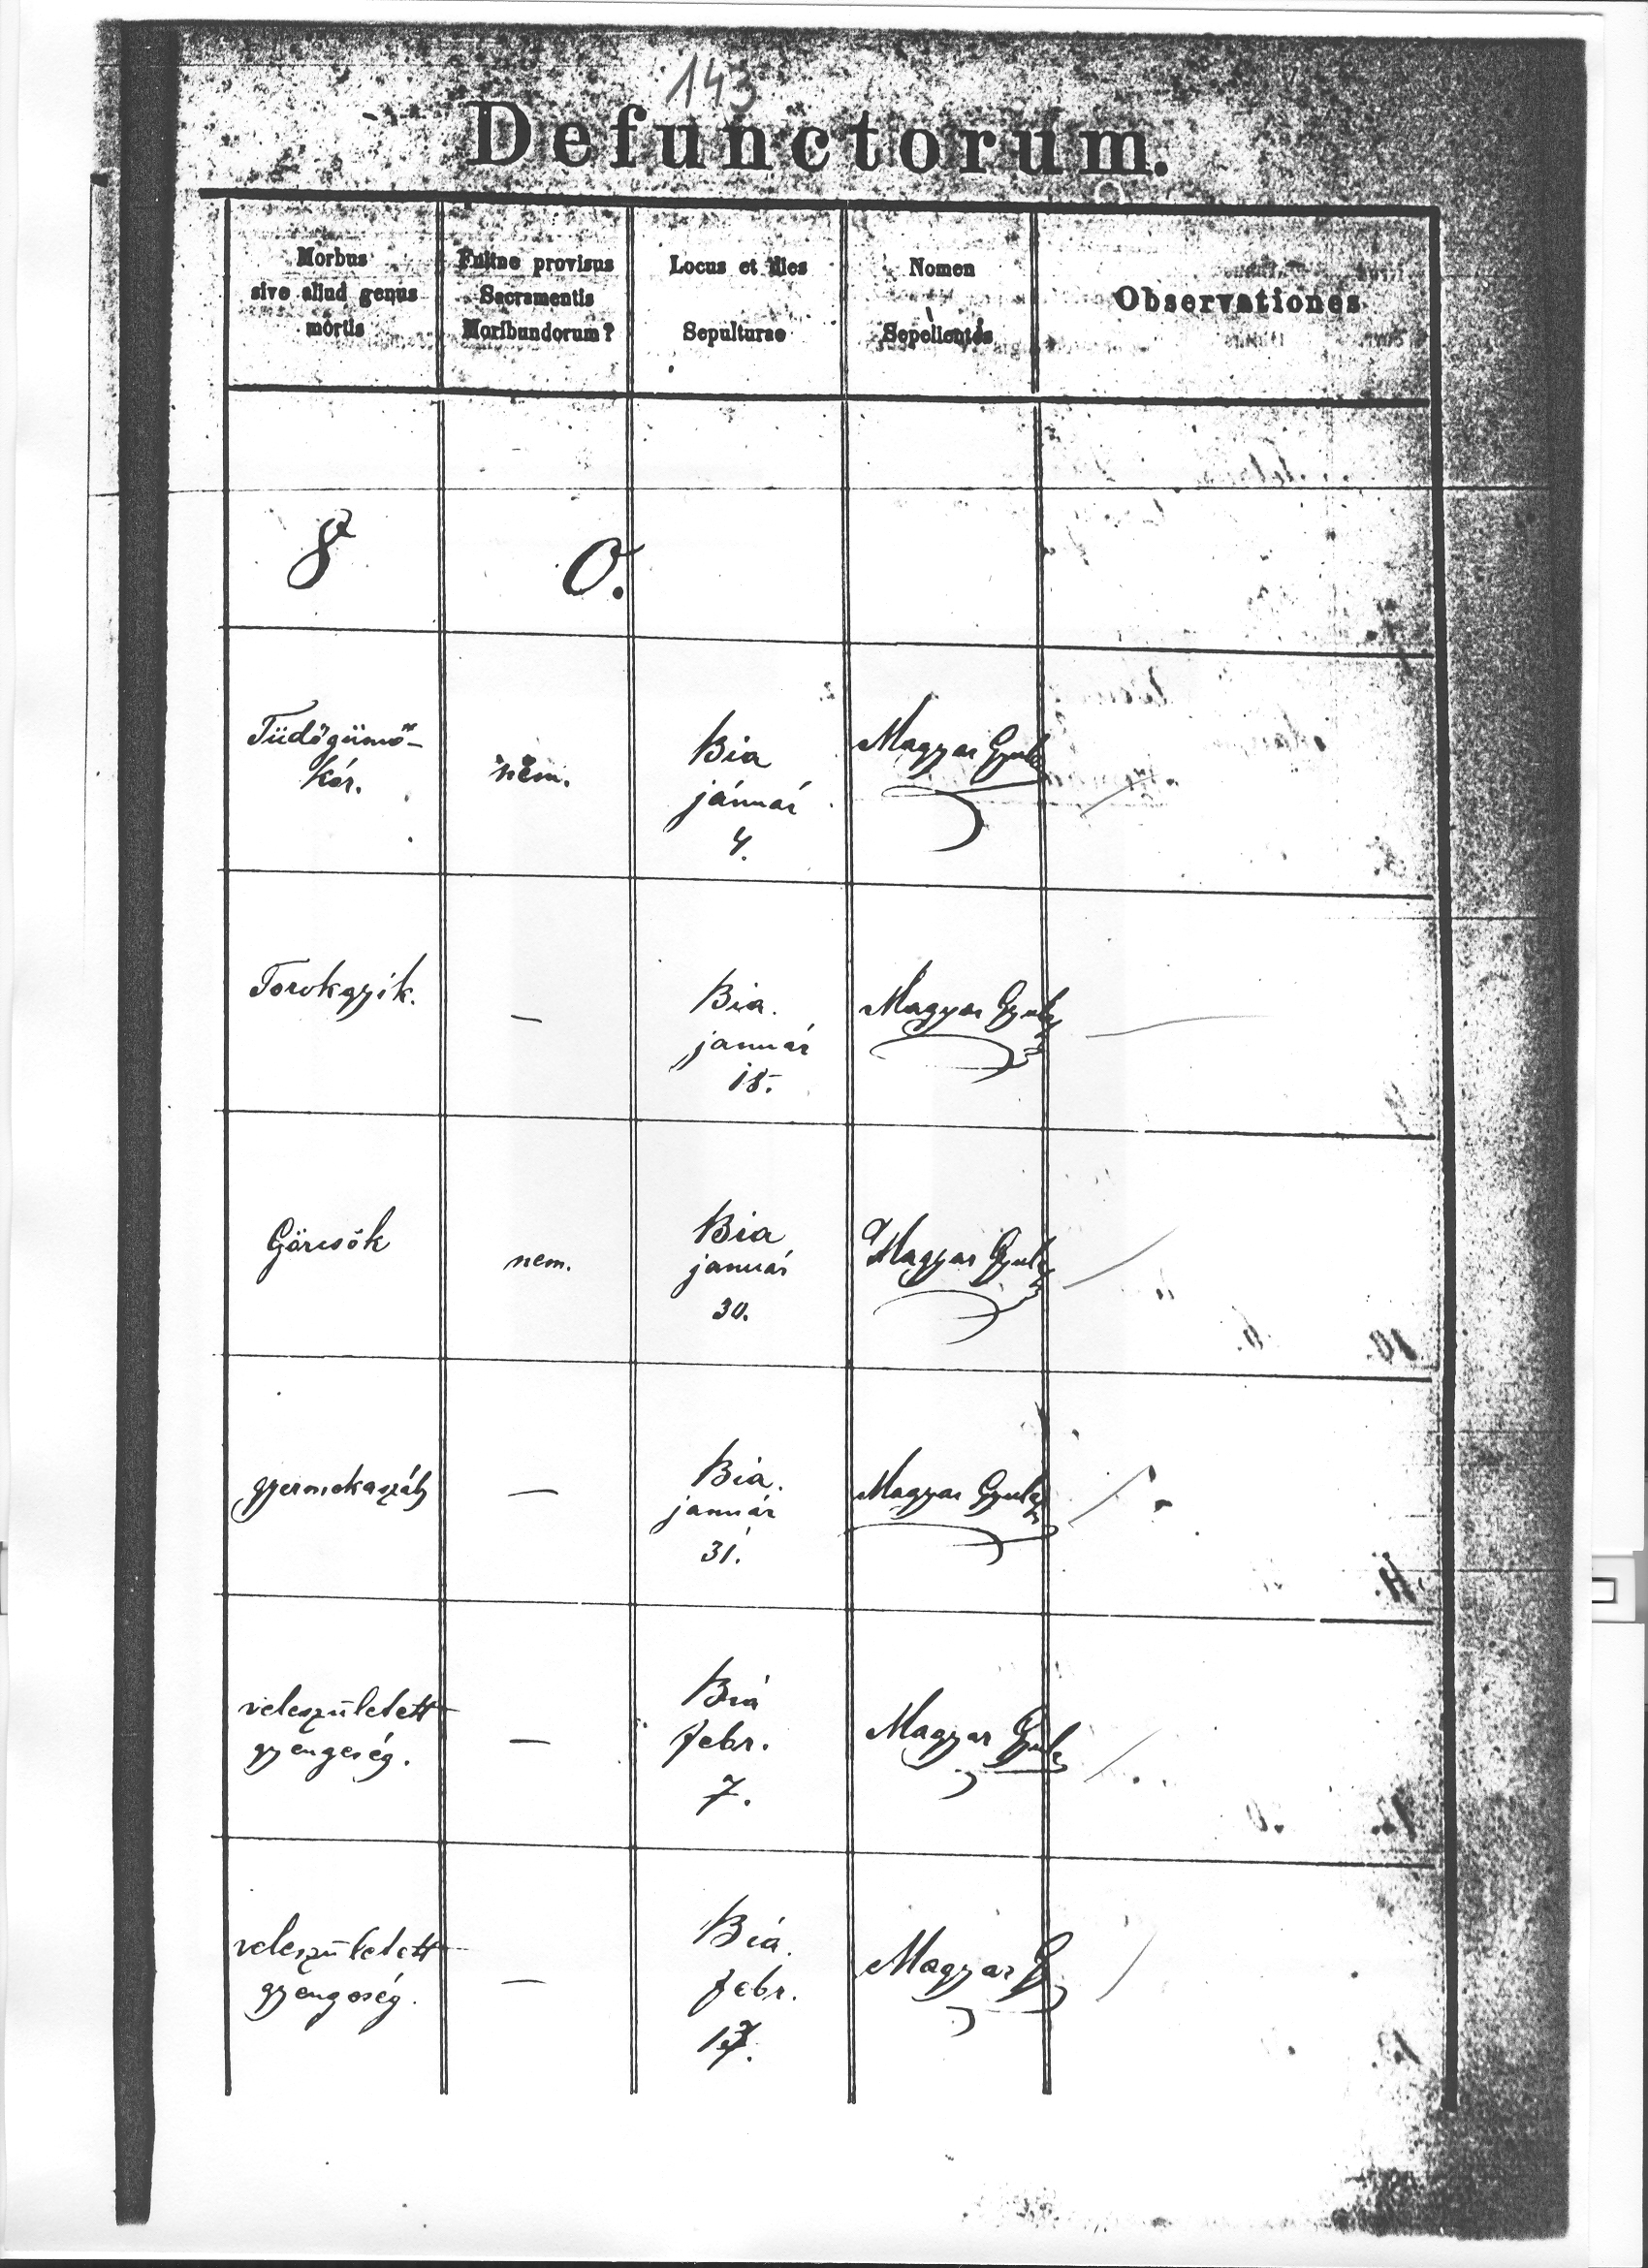 143
Defunctorum.
Morbus
sive aliud genus
mortis
Fuitne provisus
Sacramentis
Moribundorum?
Locus et dies
Sepulturae
Nomen
Sepelientis
Observationes
8 0.
Tüdőgümő-
kór.
nem.
Bia
január
4.
Magyar Gyula
Torokgyík.
—
Bia.
január
15.
Magyar Gyula
Görcsök
nem.
Bia
január
30.
Magyar Gyula
gyermekaszály
—
Bia.
január
31.
Magyar Gyula
veleszületett
gyengeség.
—
Bia
febr.
7.
Magyar Gyula
veleszületett
gyengeség.
—
Bia.
febr.
Magyar G